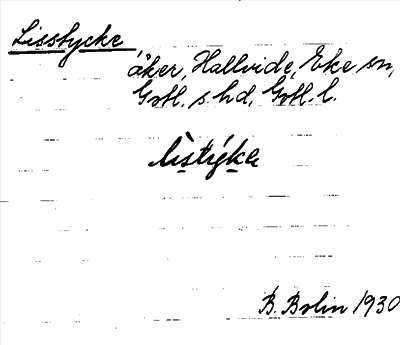 Lisstycke
åker, Hallvide, Eke sn,
Gotl. s. hd, Gotl. l.
lìstýka
B. Bolin 1930